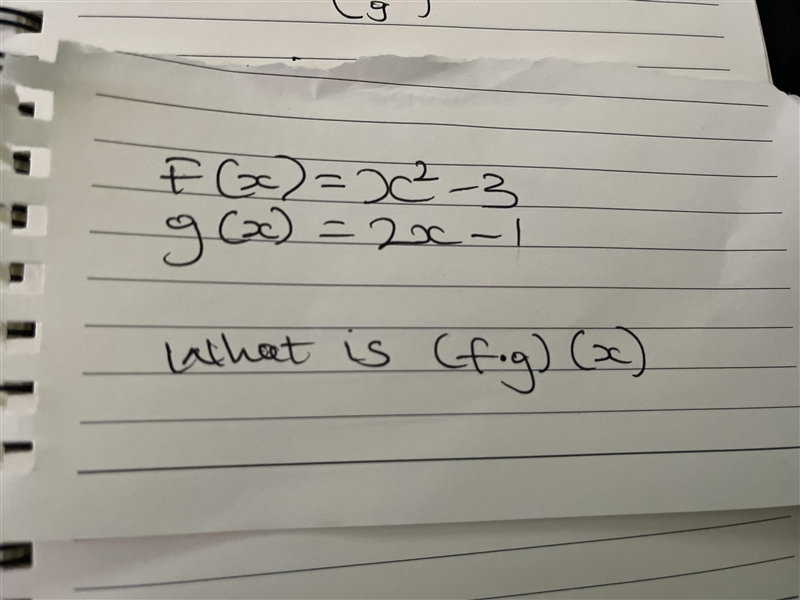 (g)
F(x) = x² - 3
g(x) = 2x - 1
What is (f·g)(x)